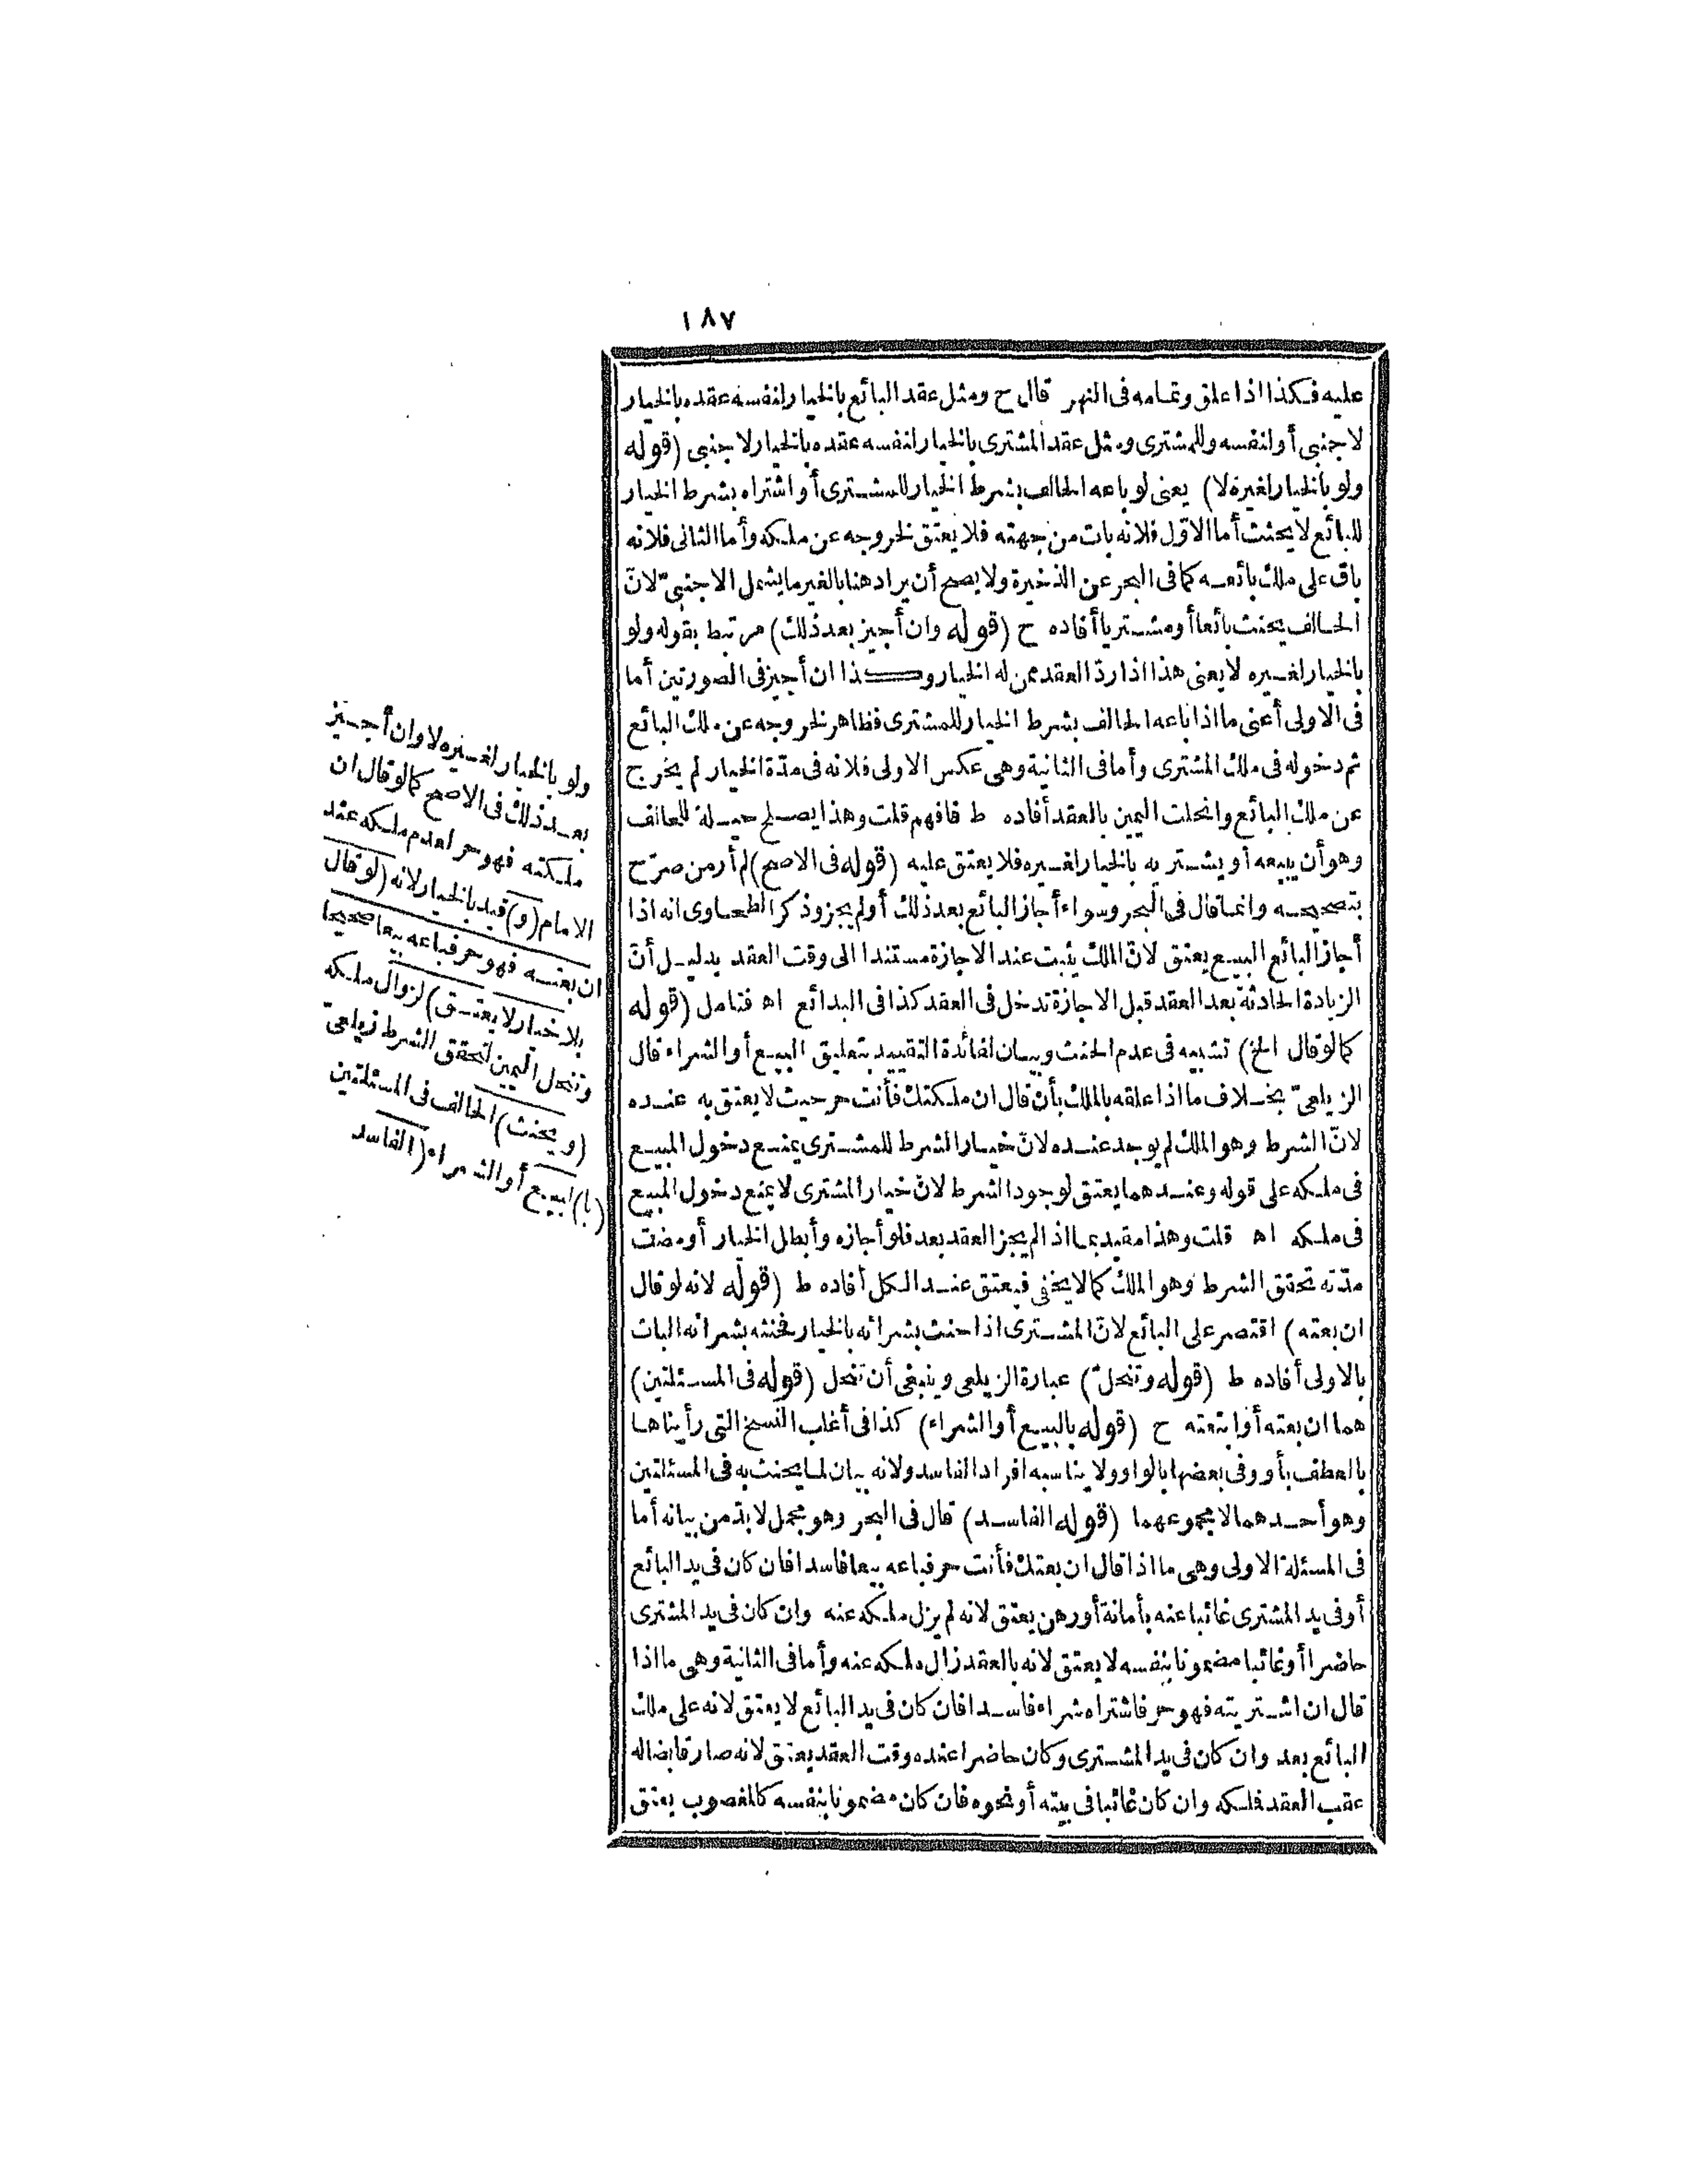 ١٨٧
عليه فكذا اذا علق وتمامه فى النهر قال ح ومثل عقد البائع بالخيار لنفسه عقده بالخيار
لاجنبى أو لنفسه وللمشترى ومثل عقد المشترى بالخيار لنفسه عقده بالخيار لاجنبى (قوله
ولو بالخيار لغيره لا) يعنى لو باعه الحالف بشرط الخيار للمشترى أو اشتراه بشرط الخيار
للبائع لا يحنث أما الاوّل فلانه بات من جهته فلا يعتق لخروجه عن ملكه وأما الثانى فلانه
باق على ملك بائعه كما فى البحر عن الذخيرة ولا يصح أن يراد هنا بالغير ما يشمل الاجنبىّ لانّ
الحالف يحنث بائعا أو مشتريا أفاده ح (قوله وان أجيز بعد ذلك) مرتبط بقوله ولو
بالخيار لغيره لا يعنى هذا اذا ردّ العقد ممن له الخيار وكذا ان أجيز فى الصورتين أما
فى الاولى أعنى ما اذا باعه الحالف بشرط الخيار للمشترى فظاهر لخروجه عن ملك البائع
ثم دخوله فى ملك المشترى وأما فى الثانية وهى عكس الاولى فلانه فى مدّة الخيار لم يخرج
عن ملك البائع وانحلت اليمين بالعقد أفاده ط فافهم قلت وهذا يصلح حيلة للحالف
وهو أن يبيعه أو يشتريه بالخيار لغيره فلا يعتق عليه (قوله فى الاصح) لم أر من صرّح
بتصحيحه وانما قال فى البحر وسواء أجاز البائع بعد ذلك أو لم يجز وذكر الطحاوى انه اذا
أجاز البائع البيع يعتق لانّ الملك يثبت عند الاجازة مستندا الى وقت العقد بدليل أنّ
الزيادة الحادثة بعد العقد قبل الاجازة تدخل فى العقد كذا فى البدائع اه فتامل (قوله
كما لو قال الخ) تشبيه فى عدم الحنث وبيان لفائدة التقييد بتعليق البيع أو الشراء قال
الزيلعىّ بخلاف ما اذا علقه بالملك بأن قال ان ملكتك فأنت حر حيث لا يعتق به عنده
لانّ الشرط وهو الملك لم يوجد عنده لانّ خيار الشرط للمشترى يمنع دخول المبيع
فى ملكه على قوله وعندهما يعتق لوجود الشرط لانّ خيار المشترى لا يمنع دخول المبيع
فى ملكه اه قلت وهذا مقيد بما اذ الم يجز العقد بعد فلو أجازه وأبطل الخيار أو مضت
مدّته تحقق الشرط وهو الملك كما لا يخفى فيعتق عند الكل أفاده ط (قوله لانه لو قال
ان بعته) اقتصر على البائع لانّ المشترى اذا حنث بشرائه بالخيار فحنثه بشرائه البات
بالاولى أفاده ط (قوله وتنحلّ) عبارة الزيلعى وينبغى أن تنحل (قوله فى المسئلتين)
هما ان بعته أو ابتعته ح (قوله بالبيع أو الشراء) كذا فى أغلب النسخ التى رأيناها
بالعطف بأو وفى بعضها بالواو ولا يناسبه افراد الفاسد ولانه بيان لما يحنث به فى المسئلتين
وهو أحدهما لا مجموعهما (قوله الفاسد) قال فى البحر وهو مجمل لا بدّ من بيانه أما
فى المسئلة الاولى وهى ما اذا قال ان بعتك فأنت حر فباعه بيعا فاسدا فان كان فى يد البائع
أو فى يد المشترى غائبا عنه بأمانة أو رهن يعتق لانه لم يزل ملكه عنه وان كان فى يد المشترى
حاضرا أو غائبا مضمونا بنفسه لا يعتق لانه بالعقد زال ملكه عنه وأما فى الثانية وهى ما اذا
قال ان اشتريته فهو حر فاشتراه شراء فاسدا فان كان فى يد البائع لا يعتق لانه على ملك
البائع بعد وان كان فى يد المشترى وكان حاضرا عنده وقت العقد يعتق لانه صار قابضا له
عقب العقد فملكه وان كان غائبا فى بيته أو نحوه فان كان مضمونا بنفسه كالمغصوب يعتق
ولو بالخيار لغيره لا وان أجيز
بعد ذلك فى الاصح كما لو قال ان
ملكته فهو حر لعدم ملكه عند
الامام (و) قيد بالخيار لانه (لو قال
ان بعته فهو حر فباعه بيعا صحيحا
بلا خيار لا يعتق) لزوال ملكه
وتنحل اليمين لتحقق الشرط زيلعىّ
(ويحنث) الحالف فى المسئلتين
(با) لبيع أو الشراء (الفاسد